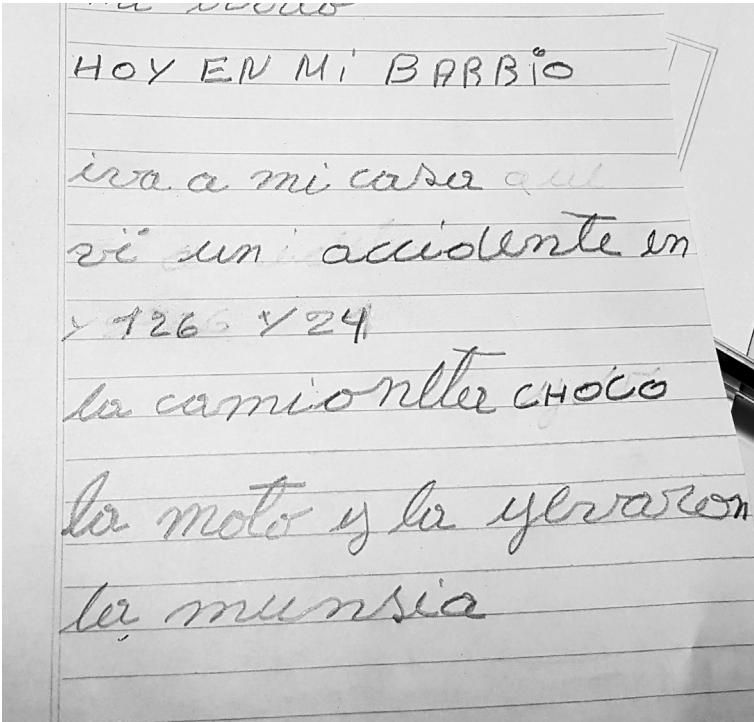 HOY EN Mi BARRiO
iva a mi casa que
vi un accidente en
y 126 y 24
la camionetta CHOCO
la moto y la yevaron
la munsia